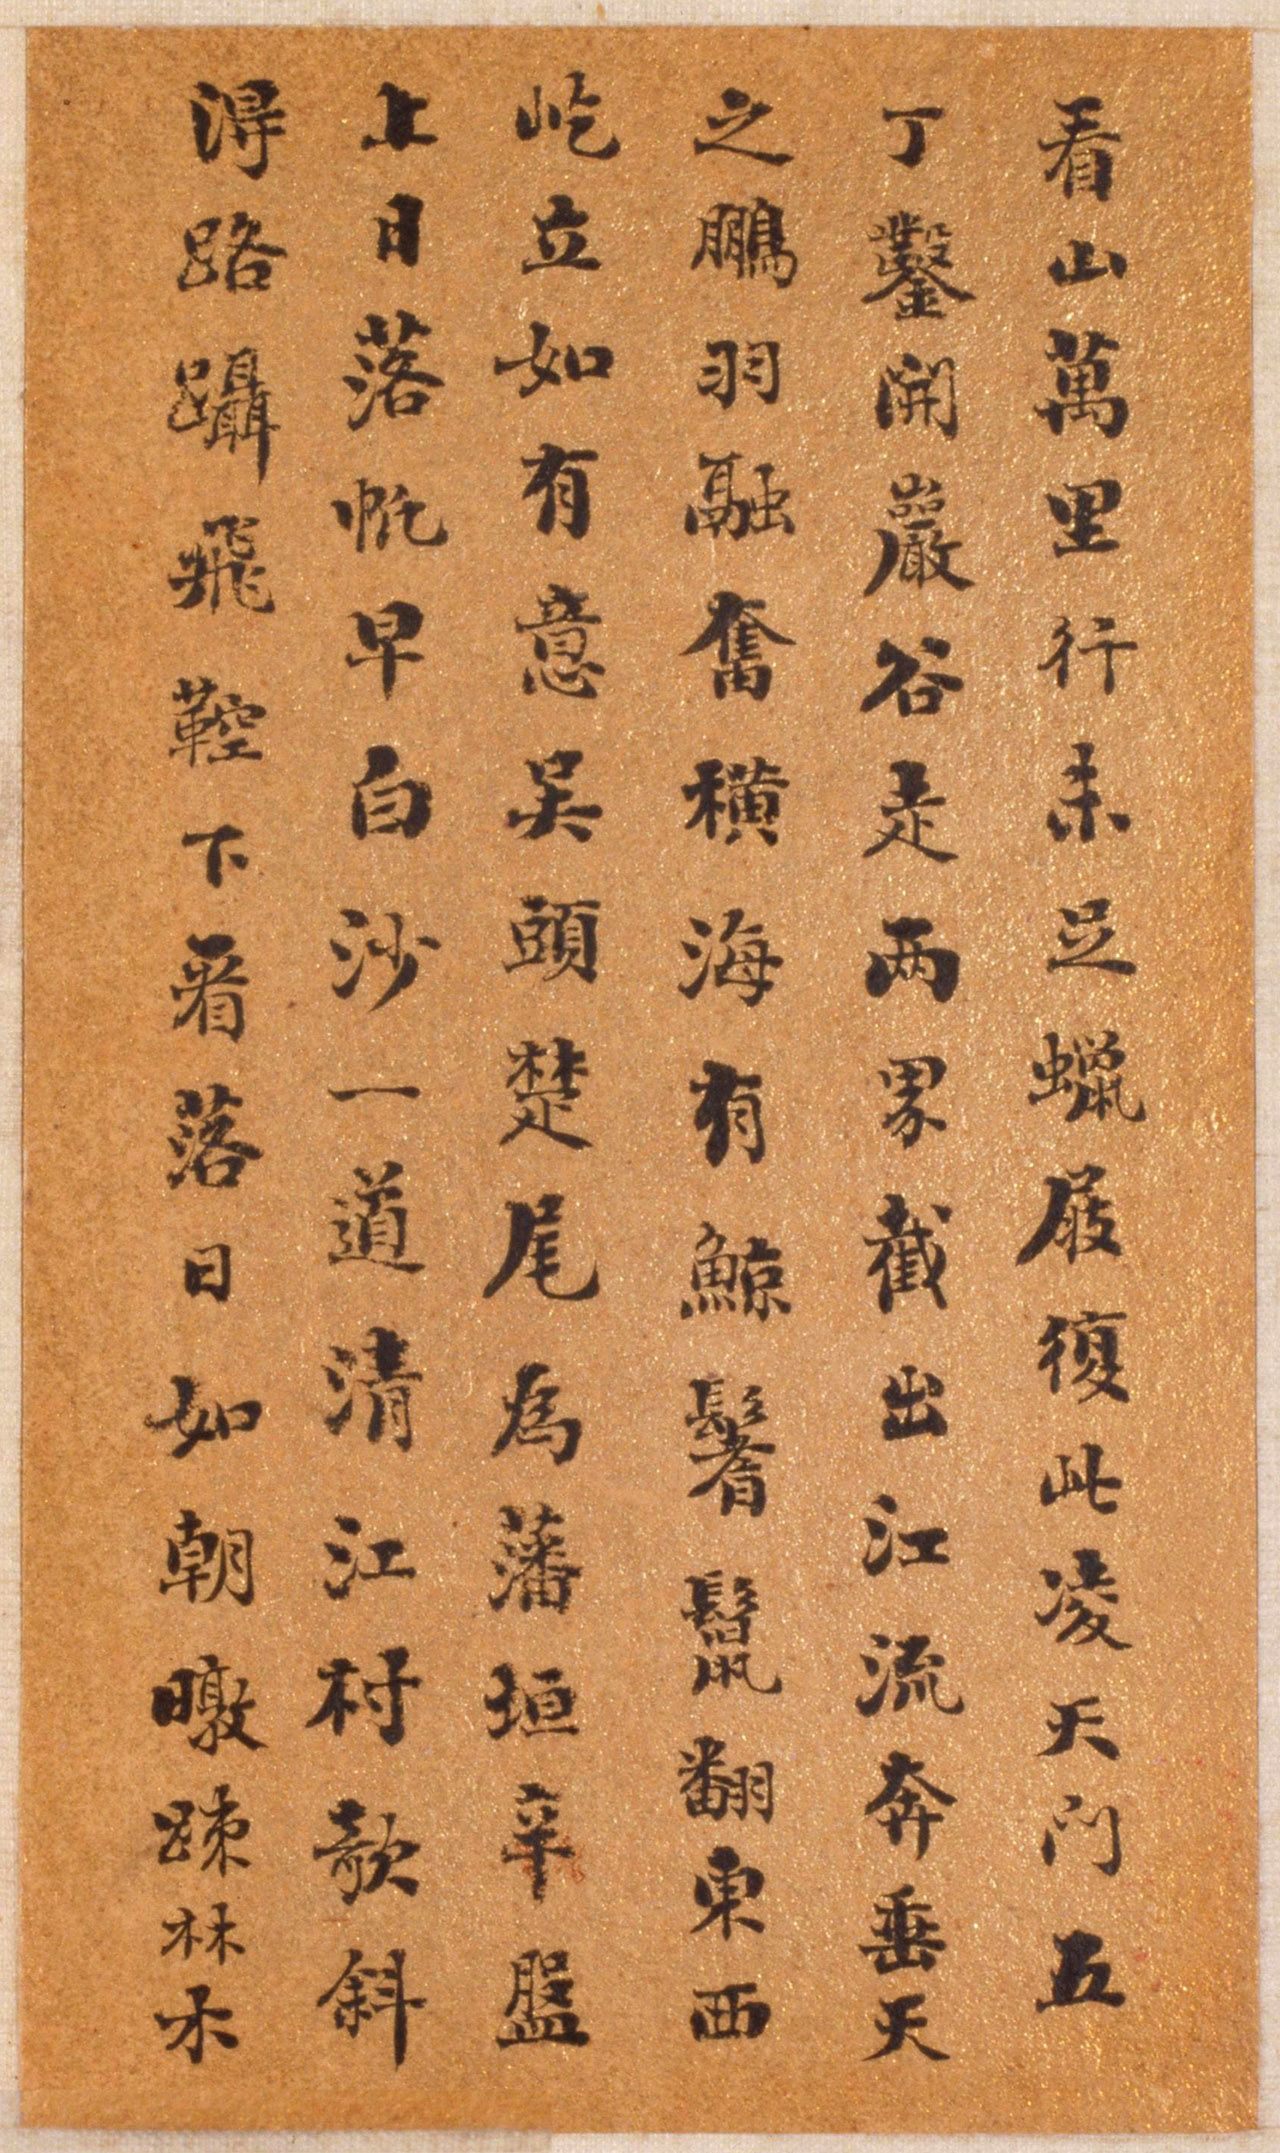 看山萬里行未足蠟屐復此凌天門五
丁鑿開巖谷走兩界截出江流奔垂天
之鵬羽融奮橫海有鯨鬐鬣翻東西
屹立如有意吳頭楚尾為藩垣辛盤
上日落帆早白沙一道清江村欹斜
得路躡飛鞚下看落日如朝暾疎林木